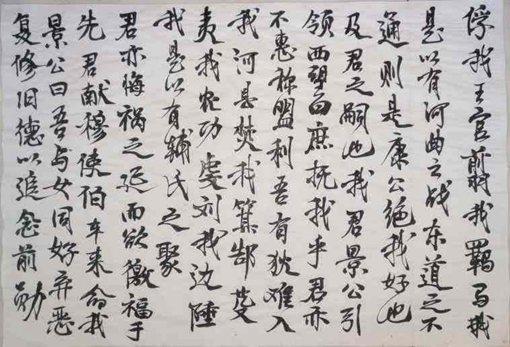 俘我王官翦我羁马我
是以有河曲之战东道之不
通则是康公绝我好也
及君之嗣也我君景公引
领西望曰庶抚我乎君亦
不惠称盟利吾有狄难入
我河县焚我箕郜芟
夷我农功虔刘我边陲
我是以有辅氏之聚
君亦悔祸之延而欲徼福于
先君献穆使伯车来命我
景公曰吾与女同好弃恶
复修旧德以追念前勋